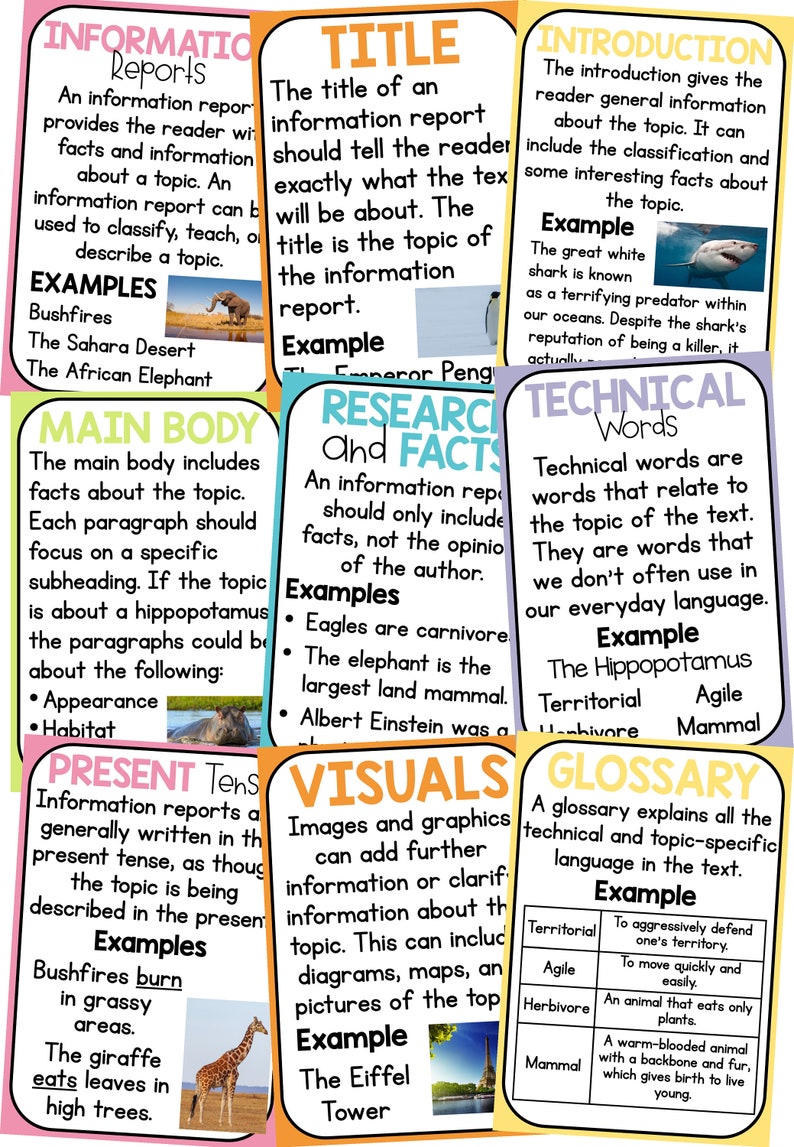 INFORMATIO
Reports
An information report
provides the reader wi
facts and information
about a topic. An
information report can b
used to classify, teach, or
describe a topic.
EXAMPLES
Bushfires
The Sahara Desert
The African Elephant
TITLE
The title of an
information report
should tell the reader
exactly what the tex
will be about. The
title is the topic of
the information
report.
Example
The Emperor Pengu
INTRODUCTION
The introduction gives the
reader general information
about the topic. It can
include the classification and
some interesting facts about
the topic.
Example
The great white
shark is known
as a terrifying predator within
our oceans. Despite the shark's
reputation of being a killer, it
actually
MAIN BODY
The main body includes
facts about the topic.
Each paragraph should
focus on a specific
subheading. If the topic
is about a hippopotamus
the paragraphs could be
about the following:
• Appearance
• Habitat
RESEARCH
and FACTS
An information repo
should only include
facts, not the opinio
of the author.
Examples
• Eagles are carnivore
• The elephant is the
largest land mammal.
• Albert Einstein was a
TECHNICAL
Words
Technical words are
words that relate to
the topic of the text.
They are words that
we don't often use in
our everyday language.
Example
The Hippopotamus
Territorial Agile
Herbivore Mammal
PRESENT Tens
Information reports a
generally written in th
present tense, as thoug
the topic is being
described in the present
Examples
Bushfires burn
in grassy
areas.
The giraffe
eats leaves in
high trees.
VISUALS
Images and graphics
can add further
information or clarify
information about th
topic. This can includ
diagrams, maps, an
pictures of the top
Example
The Eiffel
Tower
GLOSSARY
A glossary explains all the
technical and topic-specific
language in the text.
Example
Territorial To aggressively defend
one's territory.
Agile To move quickly and
easily.
Herbivore An animal that eats only
plants.
Mammal A warm-blooded animal
with a backbone and fur,
which gives birth to live
young.